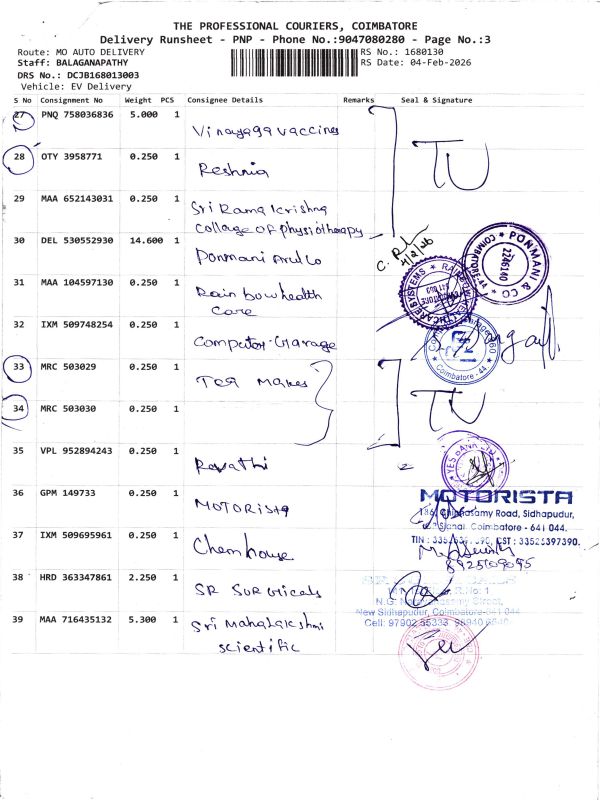 THE PROFESSIONAL COURIERS, COIMBATORE
Delivery Runsheet - PNP - Phone No.:9047080280 - Page No.:3
Route: MO AUTO DELIVERY
RS No.: 1680130
Staff: BALAGANAPATHY
RS Date: 04-Feb-2026
DRS No.: DCJB168013003
Vehicle: EV Delivery
S No Consignment No Weight PCS Consignee Details Remarks Seal & Signature
27 PNQ 758036836 5.000 1
Vinayaga vaccines
28 OTY 3958771 0.250 1
Reshnia
TU
29 MAA 652143031 0.250 1
Sri Ramakrishna
collage of physiotherapy
30 DEL 530552930 14.600 1
Ponmani And Co
4/2/26
PONMANI & CO
COIMBATORE-44
2246140
31 MAA 104597130 0.250 1
Rainbow health
care
32 IXM 509748254 0.250 1
Computer Garage
Coimbatore - 44
33 MRC 503029 0.250 1
Tea Makes
34 MRC 503030 0.250 1
TU
35 VPL 952894243 0.250 1
Revathi
YES BANK LTD
36 GPM 149733 0.250 1
MOTORISTA
MOTORISTA
186, Chinnasamy Road, Sidhapudur,
Signal, Coimbatore - 641 044.
CST : 33525397390.
37 IXM 509695961 0.250 1
Chemhouse
8925609095
38 HRD 363347861 2.250 1
SR Surgicals
New Sidhapudur, Coimbatore-641 044
39 MAA 716435132 5.300 1
Sri Mahalakshmi
scientific